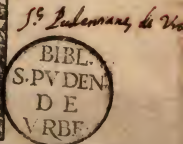 S.ᵃᵉ Pudentianæ de Vrb
BIBL.
S.PVDEN
D E
VRBE.